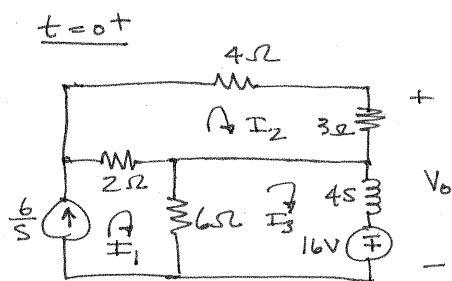 t=0⁺
4Ω
+
I₂
3Ω
2Ω
4S
V₀
6/S
I₁
6Ω
I₃
16V
-